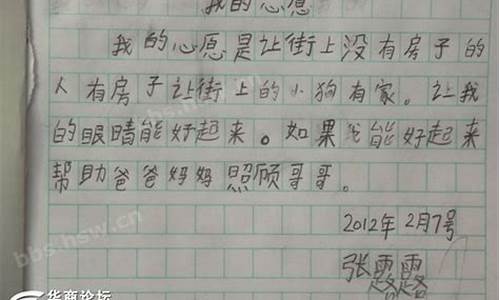 我的心愿
我的心愿是让街上没有房子的
人有房子让街上的小狗有家。让我
的眼睛能好起来。如果我能好起来
帮助爸爸妈妈照顾哥哥。
2012年2月7号
张露露
bbs.hsw.cn
华商论坛